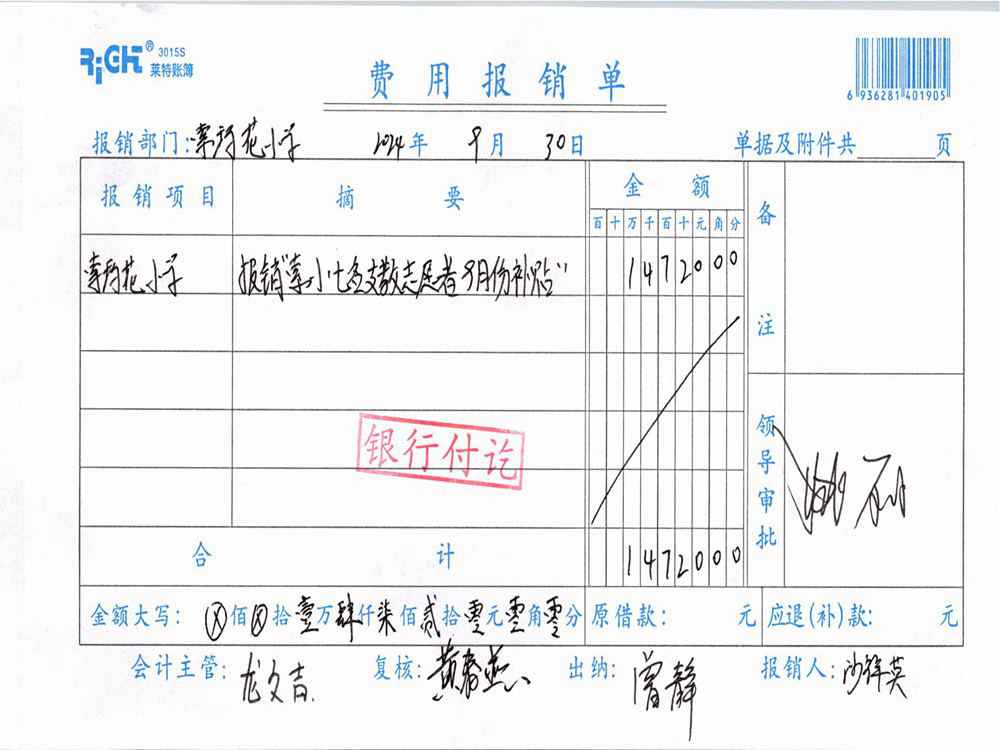 RiGHT® 3015S
莱特账簿
费用报销单
6 936281 401905
报销部门:索玛花小学 2024年 9月 30日 单据及附件共 页
报销项目 摘要 金额 备注
百十万千百十元角分
索玛花小学 报销"索小七色支教志愿者9月份补贴" 1472000
银行付讫
领导审批
合计 14720000
金额大写: ⊗佰⊗拾壹万肆仟柒佰贰拾零元零角零分 原借款: 元 应退(补)款: 元
会计主管:龙文吉. 复核:黄春燕 出纳:曾静 报销人:沙锋英